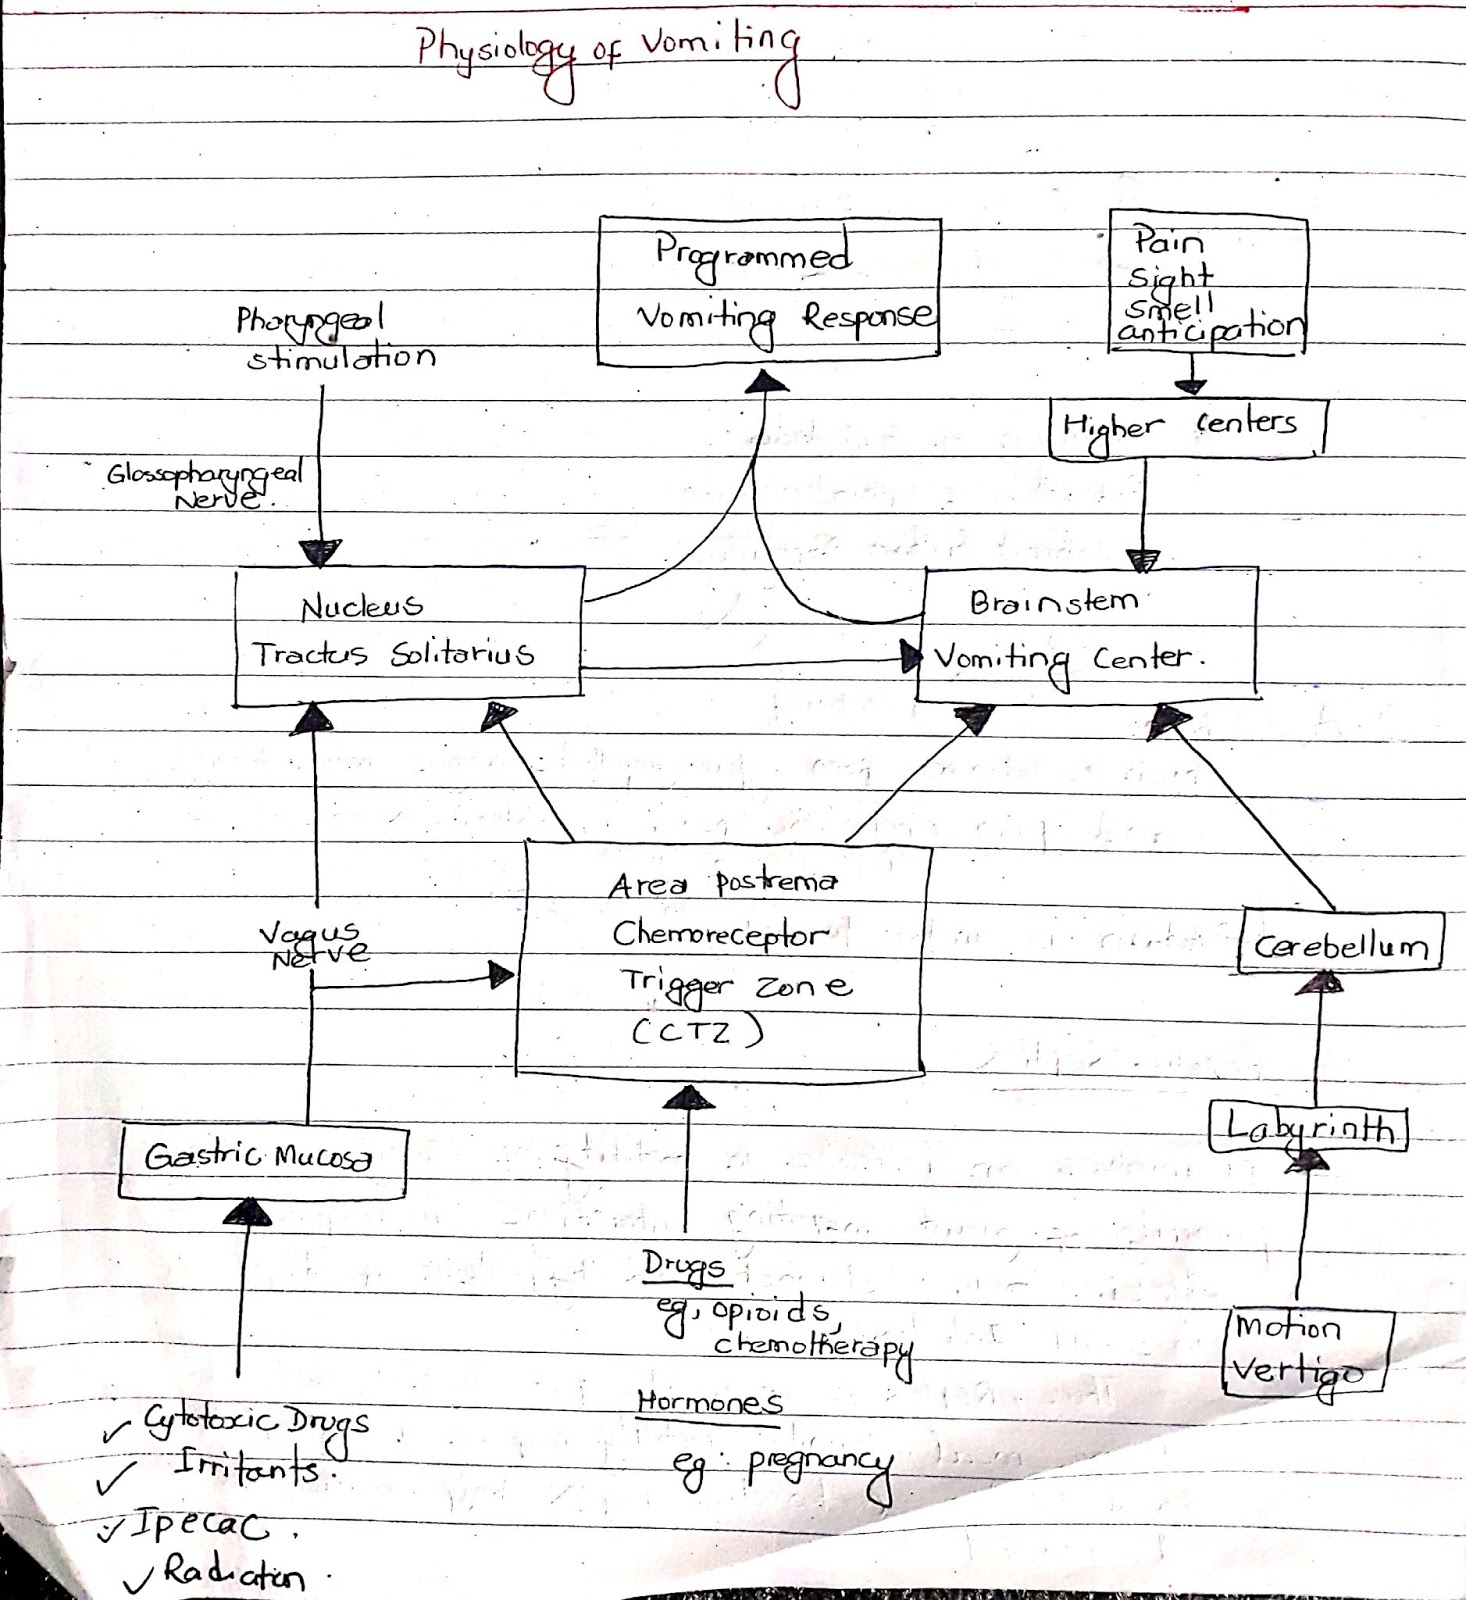 Physiology of Vomiting
Programmed
Vomiting Response
Pain
Sight
Smell
anticipation
Pharyngeal
stimulation
Higher Centers
Glossopharyngeal
Nerve.
Nucleus
Tractus Solitarius
Brainstem
Vomiting Center.
Area Postrema
Chemoreceptor
Trigger Zone
(CTZ)
Vagus
Nerve
Cerebellum
Gastric Mucosa
Labyrinth
Drugs
eg, opioids,
chemotherapy
Hormones
eg: pregnancy
Motion
Vertigo
✓ Cytotoxic Drugs
✓ Irritants.
✓ Ipecac.
✓ Radiation.